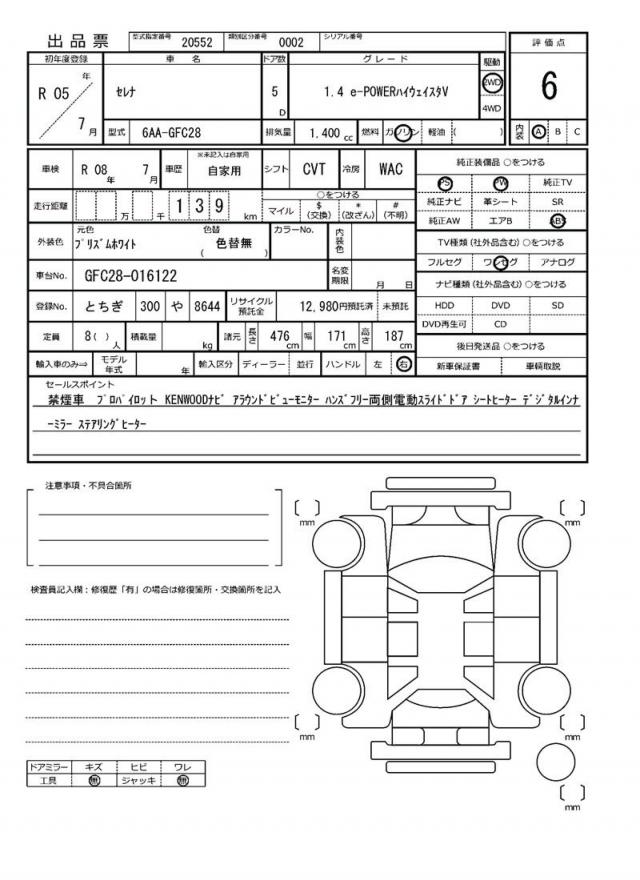 出品票 型式指定番号 20552 類別区分番号 0002 シリアル番号
評価点
6
内装 A B C
初年度登録 車名 ドア数 グレード 駆動
R 05 年 7 月
セレナ 5 D 1.4 e-POWERハイウェイスタV 2WD
4WD
型式 6AA-GFC28 排気量 1,400 cc 燃料 ガソリン 軽油 ( )
車検 R 08 年 7 月 車歴 ※未記入は自家用 自家用 シフト CVT 冷房 WAC
走行距離 万 千 139 km
○をつける
マイル $ (交換) * (改ざん) # (不明)
外装色 元色 プリズムホワイト 色替 ( 色替無 ) カラーNo. 内装色
車台No. GFC28-016122 名変期限 月 日
登録No. とちぎ 300 や 8644 リサイクル預託金 12,980円預託済 未預託
定員 8( ) 人 積載量 kg 諸元 長さ 476 cm 幅 171 cm 高さ 187 cm
輸入車のみ⇒ モデル年式 年 輸入区分 ディーラー 並行 ハンドル 左 右
純正装備品 ○をつける
PS PW 純正TV
純正ナビ 革シート SR
純正AW エアB ABS
TV種類(社外品含む) ○をつける
フルセグ ワンセグ アナログ
ナビ種類(社外品含む) ○をつける
HDD DVD SD
DVD再生可 CD
後日発送品 ○をつける
新車保証書 車輌取説
セールスポイント
禁煙車 プロパイロット KENWOODナビ アラウンドビューモニター ハンズフリー両側電動スライドドア シートヒーター デジタルインナ
ーミラー ステアリングヒーター
注意事項・不具合箇所
検査員記入欄：修復歴「有」の場合は修復箇所・交換箇所を記入
ドアミラー キズ ヒビ ワレ
工具 無 ジャッキ 無
mm
mm
mm
mm
mm